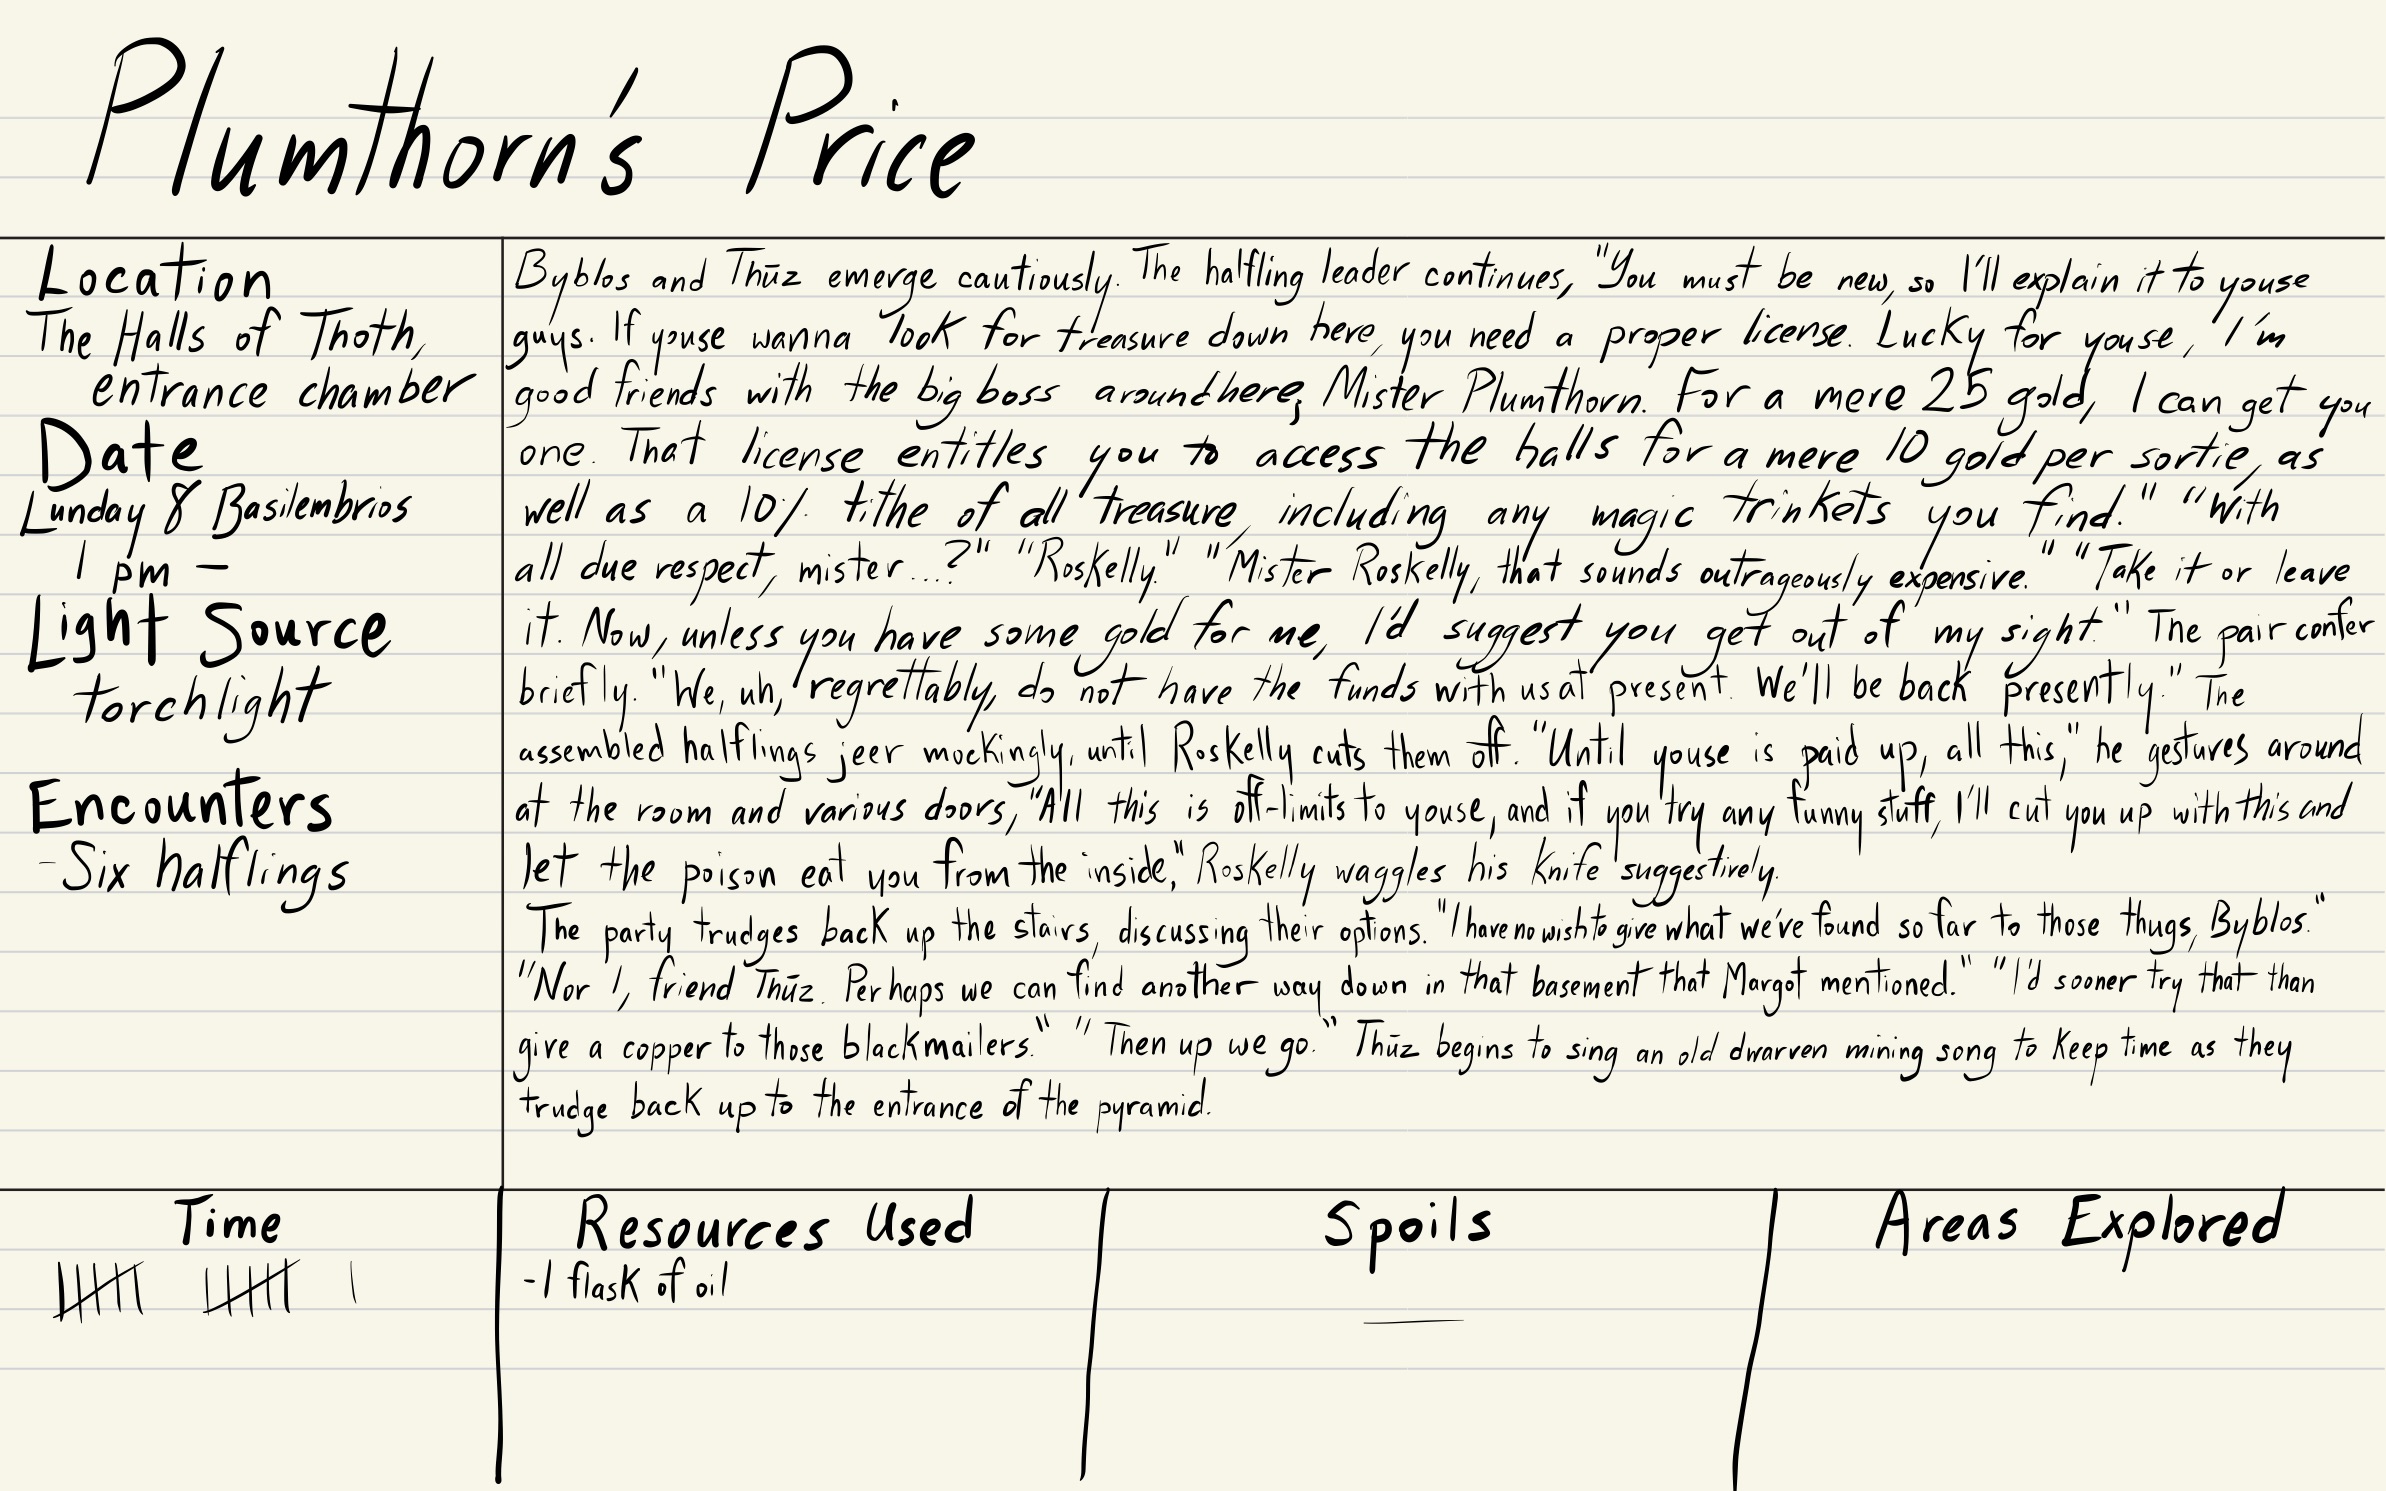 Plumthorn's Price
Location
The Halls of Thoth,
entrance chamber
Date
Lunday 8 Basilembrios
1 pm —
Light Source
torchlight
Encounters
- Six halflings
Byblos and Thūz emerge cautiously. The halfling leader continues, "You must be new, so I'll explain it to youse
guys. If youse wanna look for treasure down here, you need a proper license. Lucky for youse, I'm
good friends with the big boss around here, Mister Plumthorn. For a mere 25 gold, I can get you
one. That license entitles you to access the halls for a mere 10 gold per sortie, as
well as a 10% tithe of all treasure, including any magic trinkets you find." "With
all due respect, mister...?" "Roskelly." "Mister Roskelly, that sounds outrageously expensive." "Take it or leave
it. Now, unless you have some gold for me, I'd suggest you get out of my sight." The pair confer
briefly. "We, uh, regrettably, do not have the funds with us at present. We'll be back presently." The
assembled halflings jeer mockingly, until Roskelly cuts them off. "Until youse is paid up, all this," he gestures around
at the room and various doors, "All this is off-limits to youse, and if you try any funny stuff, I'll cut you up with this and
let the poison eat you from the inside," Roskelly waggles his knife suggestively.
The party trudges back up the stairs, discussing their options. "I have no wish to give what we've found so far to those thugs, Byblos."
"Nor I, friend Thūz. Perhaps we can find another way down in that basement that Margot mentioned." "I'd sooner try that than
give a copper to those blackmailers." "Then up we go." Thūz begins to sing an old dwarven mining song to keep time as they
trudge back up to the entrance of the pyramid.
Time
Resources Used
-1 flask of oil
Spoils
—
Areas Explored